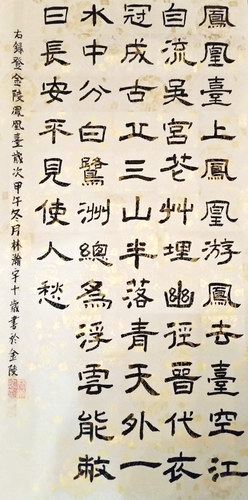 鳳凰臺上鳳凰游鳳去臺空江
自流吳宮花艸埋幽徑晉代衣
冠成古丘三山半落青天外一
水中分白鷺洲總為浮雲能敝
日長安不見使人愁
右錄登金陵鳳凰臺歲次甲午冬月林瀚宇十歲書於金陵